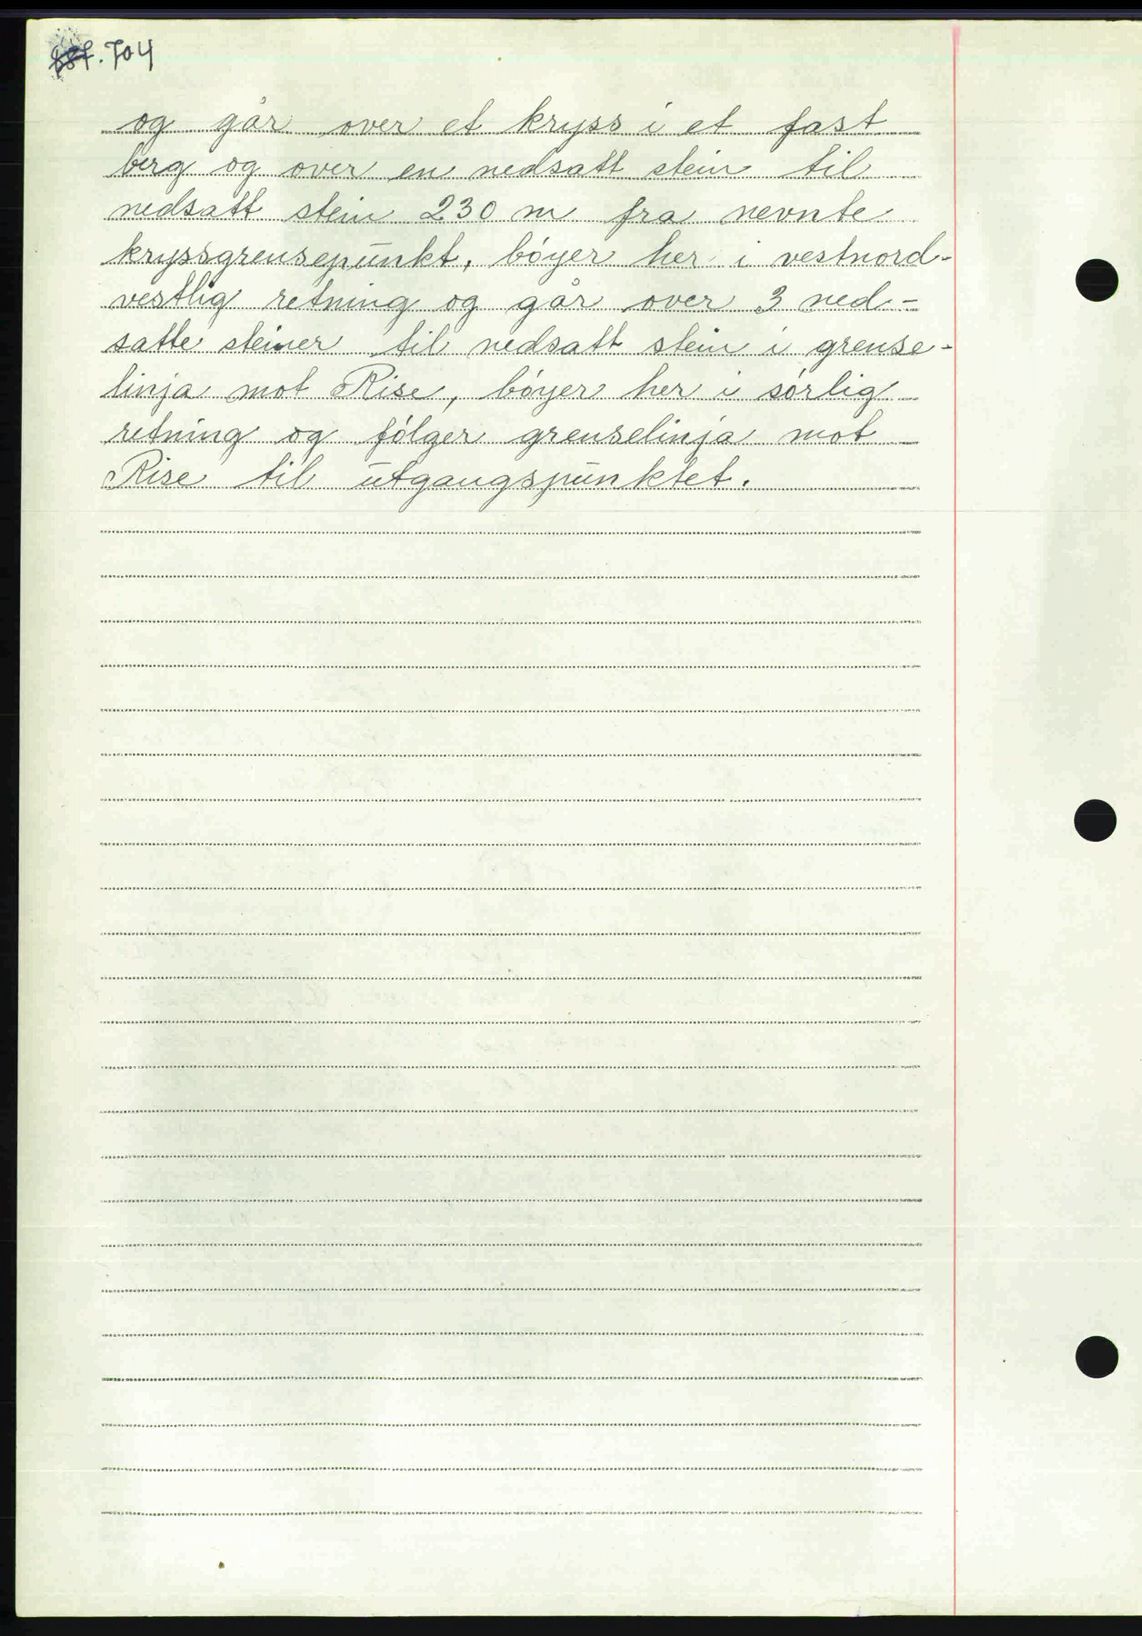 704
og går over et kryss i et fast
berg og over en nedsatt stein til
nedsatt stein 230 m fra nevnte
kryssgrensepunkt, bøyer her i vestnord-
vestlig retning og går over 3 ned-
satte steiner til nedsatt stein i grense-
linja mot Rise, bøyer her i sørlig
retning og følger grenselinja mot
Rise til utgangspunktet.